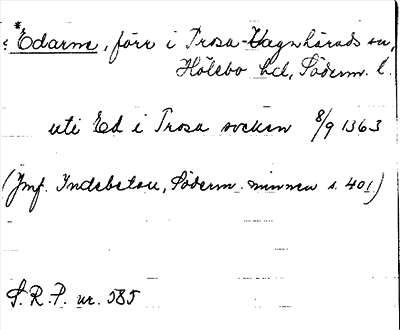 *Edarne, förr i Trosa-Vagnhärads sn,
Hölebo hd, Söderm. l.
uti Ed i Trosa socken 8/9 1363
(Jmf. Yndebetou, Söderm. minnen s. 401.)
S.R.P. nr. 585